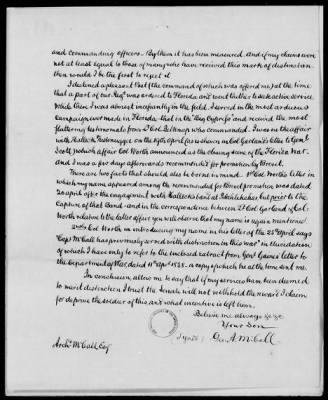 and commanding officers - By them it has been measured. And if my claims were
not at least equal to those of many who have received this mark of distinction
then would I be the first to reject it
I declined a pleasant Post (the command of which was offered me) at the time
that a part of our Regt was ordered to Florida and went thither to seek active service
Which then I was almost incessantly in the field. I served in the most arduous
campaign ever made in Florida - that in the "Big Cypress" and received the most
flattering testimonials from Lt Col Belknap who commanded. I was in the affair
with Halleck Tustenuggee on the 19th April (as is shown in Col Garland's letter to Genl
Scott) which affair Col Worth announced as the closing scene of the Florida War -
And I was a few days afterwards recommended for promotion by Brevet.
There are two facts that should also be borne in mind. 1st Col Worth's letter in
which my name appeared among the recommended for Brevet promotion was dated
20 April after the engagement with Halleck's band at but prior to the
Capture of that Band - and in the correspondence between Lt Col Garland & Col
Worth relative to the latter affair you will observe that my name is again mentioned
2nd Col Worth in introducing my name in his letter of the 25th April says
"Capt McCall has previously served with distinction in this war" in elucidation
of which I have only to refer to the inclosed extract from Genl Gaines' letter to
the department of War, dated 11th Apr 1838. a copy of which he at the time sent me.
In conclusion allow me to say that if my services have been deemed
to merit distinction I trust the Senate will not withhold the reward I claim
for deprive the soldier of this and what incentive is left him.
Believe me always &c &c
Your Son
Geo. A. McCall
Archd McCall Esq